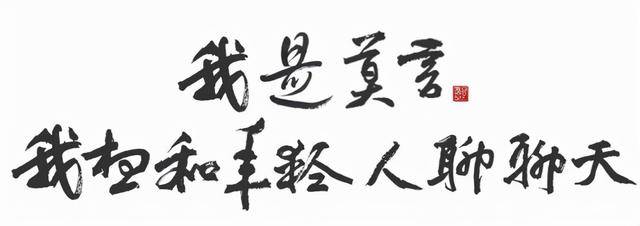 我是莫言
我想和年轻人聊聊天